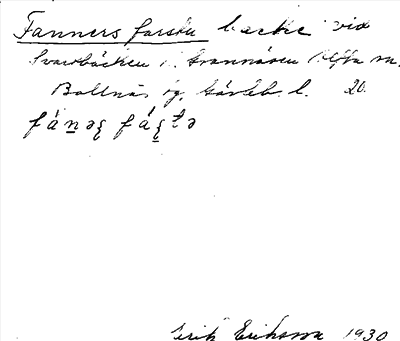 Fanners farstu backe vid
Svartbäcken i Grannäsen Alfta sn.
Bollnäs tg. Gävleb. l. 20.
Erik Eriksson 1930